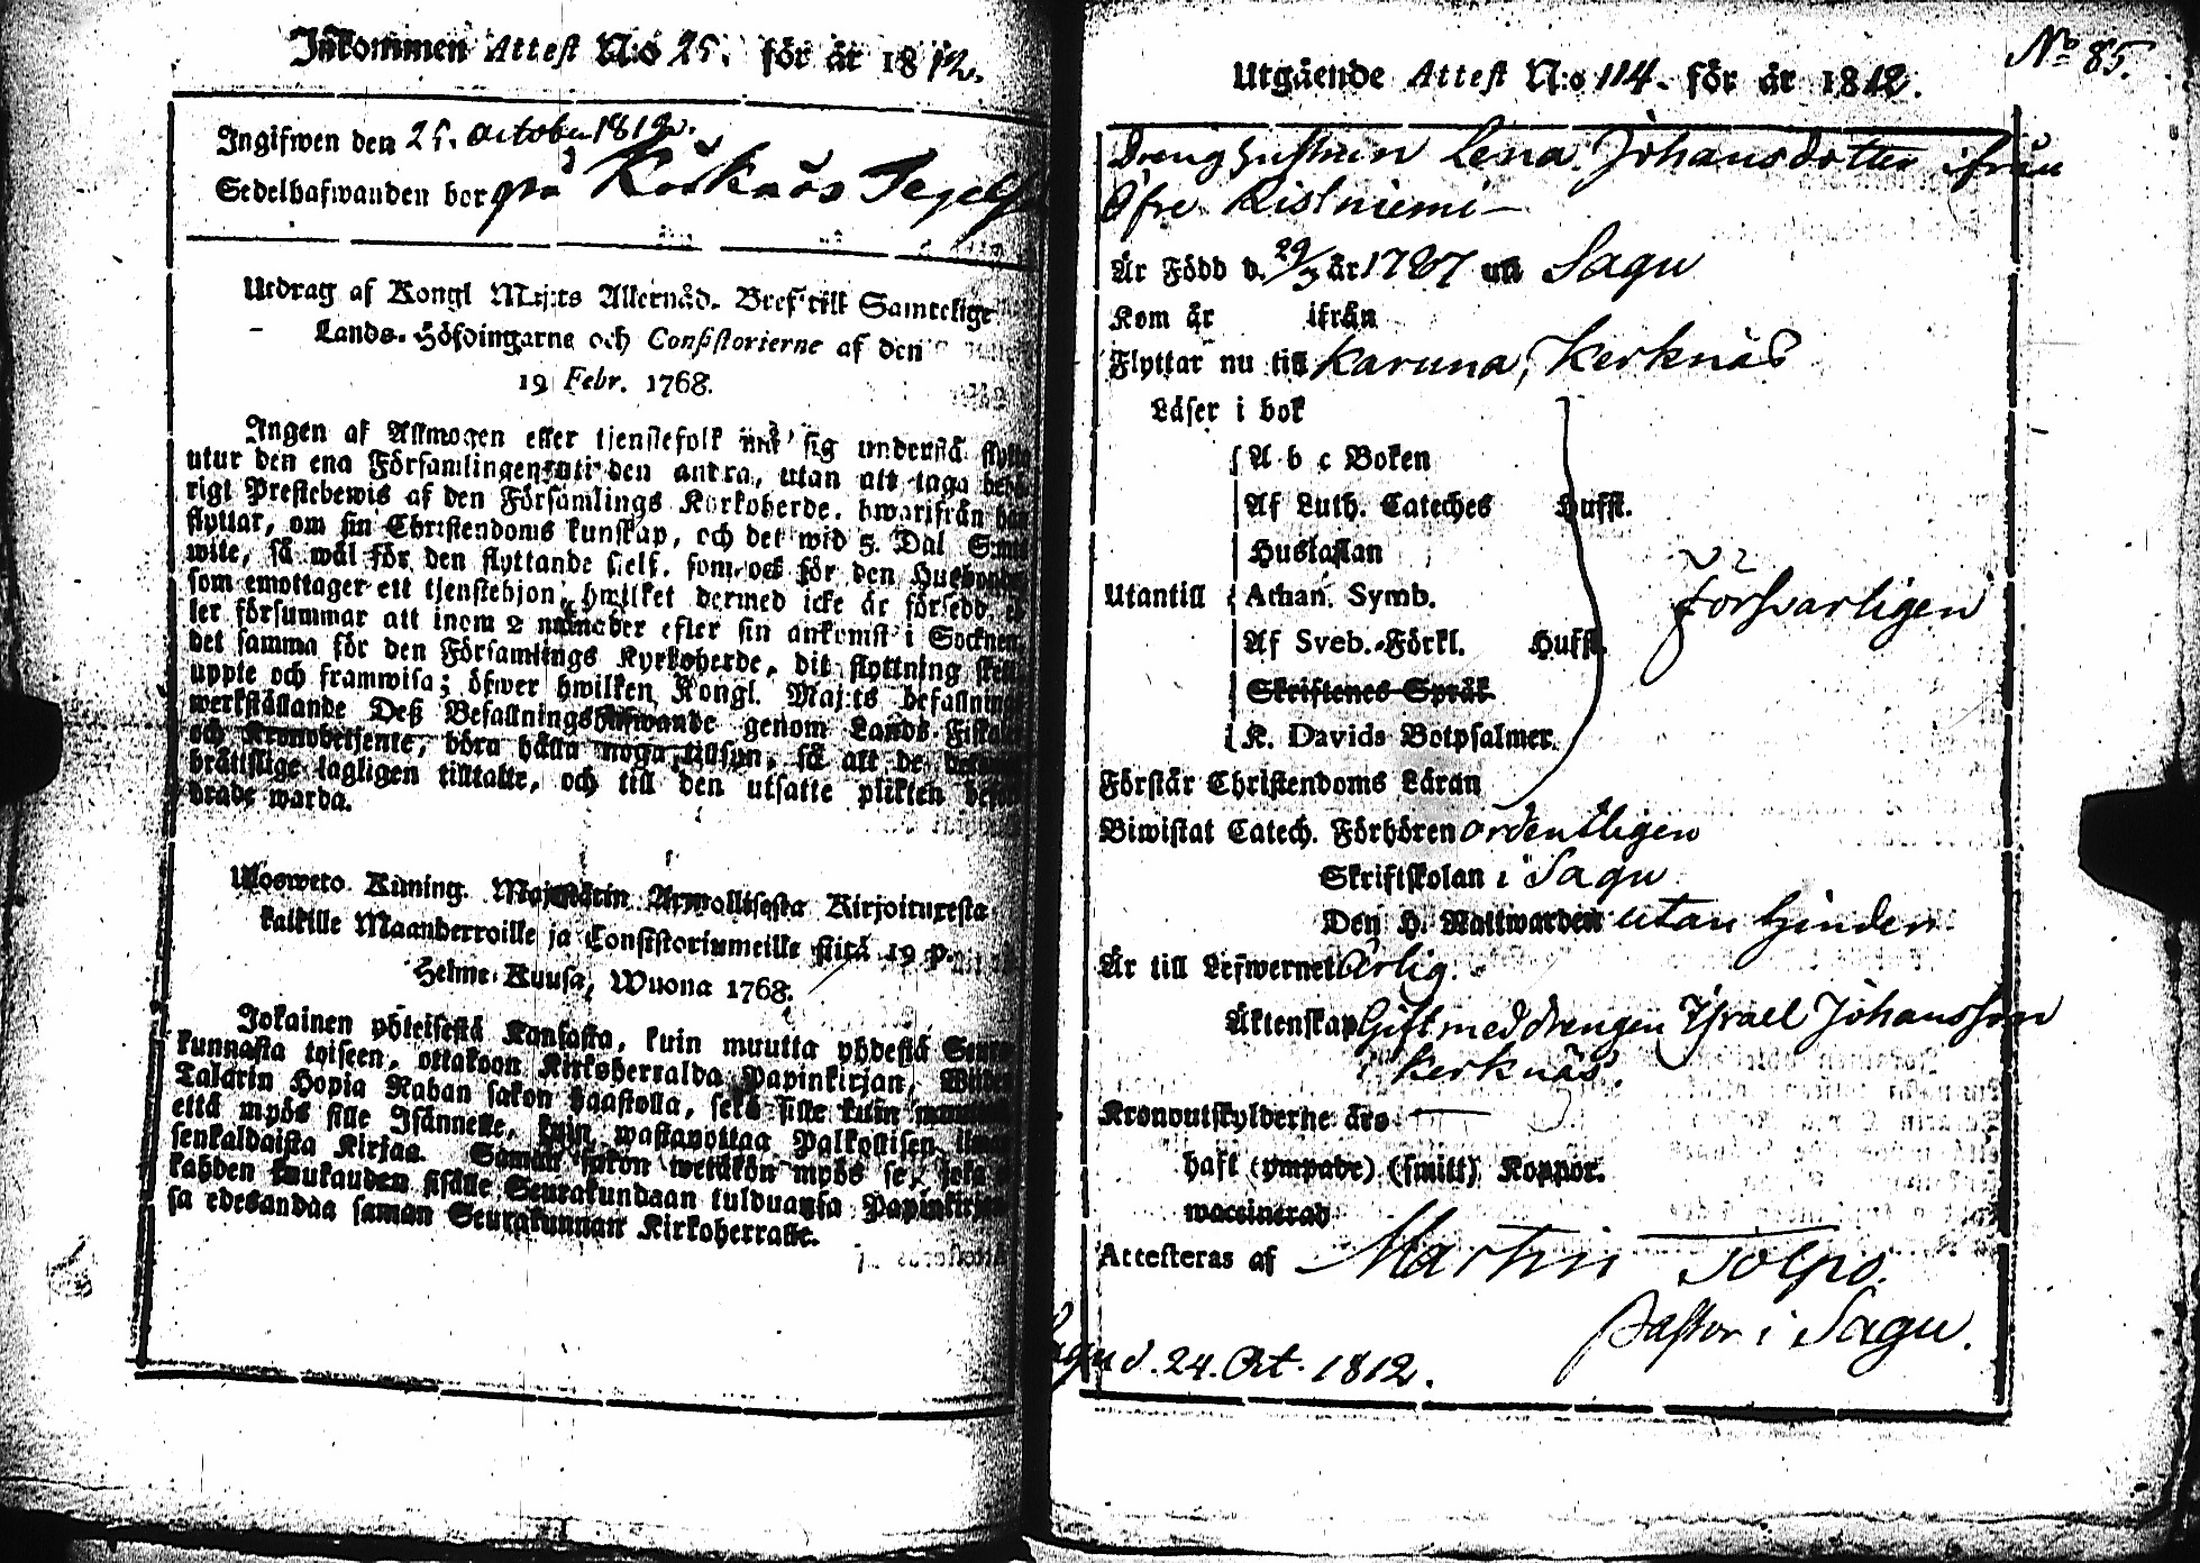 Inkommen Attest N:o 25. för år 1812.
Ingifwen den 25. october 1812.
Sedelhafwanden bor på Kärknäs
Utdrag af Kongl Maj:ts Allernåd. Bref till Samtelige
Lands-Höfdingarne och Consistorierne af den
19 Febr. 1768.
Ingen af Allmogen eller tjenstefolk må sig understå flytta
utur den ena Församlingen uti den andra, utan att taga behö-
rigt Prestebewis af den Församlings Kyrkoherde, hwarifrån han
flyttar, om sin Christendoms kunskap, och det wid 5. Dal S:mts
wite, så wäl för den flyttande sielf, som ock för den Husbonde
som emottager ett tjenstehjon, hwilket dermed icke är försedd, el-
ler försummar att inom 2 månader efter sin ankomst i Socknen,
det samma för den Församlings Kyrkoherde, dit flyttning skett
uppte och framwisa; öfwer hwilken Kongl. Maj:ts befallnings
werkställande Deß Befallningshafwande genom Lands-Fiskaler
och Kronobetjente, böra hålla noga tillsyn, så att de
brättslige lagligen tilltalte, och till den utsatte plikten
drade warda.
Ulosweto Kuning. Majestätin Armollisesta Kirjoituxesta
kaikille Maanherroille ja Consistoriumeille siitä 19 p.
Helme-Kuusa, Wuona 1768.
Jokainen yhteisestä Kansasta, kuin muutta yhdestä Seura-
kunnasta toiseen, ottakoon Kirkoherralda Papinkirjan, Wiiden
Talarin Hopia Rahan sakon haastolla, sekä sille kuin muutta
että myös sille Isännelle, kuin wastanottaa Palkollisen, ilman
senkaldaista Kirjaa. Saman sakon wetäkön myös se, joka ei
kahden kuukauden sisälle Seurakundaan tulduansa Papinkirjan-
sa edesandaa saman Seurakunnan Kirkoherralle.
N:o 85.
Utgående Attest N:o 114. för år 1812.
Dreng hustrun Lena Johansdotter ifrån
Öfre Ristniemi
Är Född d. 29/3 år 1787 uti Sagu
Kom år ifrån
Flyttar nu till Karuna, Kerknäs
Läser i bok
A b c Boken
Af Luth. Cateches Hufst.
Hustaflan
Utantill Athan. Symb.
Af Sveb. Förkl. Hufst.
försvarligen
Skriftenes Språk
K. Davids Botpsalmer.
Förstår Christendoms Läran
Biwistat Catech. Förhören ordentligen
Skriftskolan i Sagu
Den H. Nattwarden utan hinder
Är till Lefwernet Ärlig.
Äktenskap Gift med drengen Israel Johansson
i Kerknäs.
Kronoutskylderne äro
haft (ympade) (smitt) Koppor.
waccinerad
Attesteras af Martin Tolpo.
Pastor i Sagu.
Sagu d. 24. Oct. 1812.